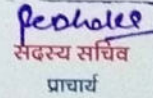 सदस्य सचिव
प्राचार्य